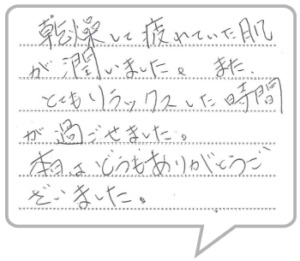 乾燥して疲れていた肌
が潤いました。また、
とてもリラックスした時間
が過ごせました。
本日はどうもありがとうご
ざいました。